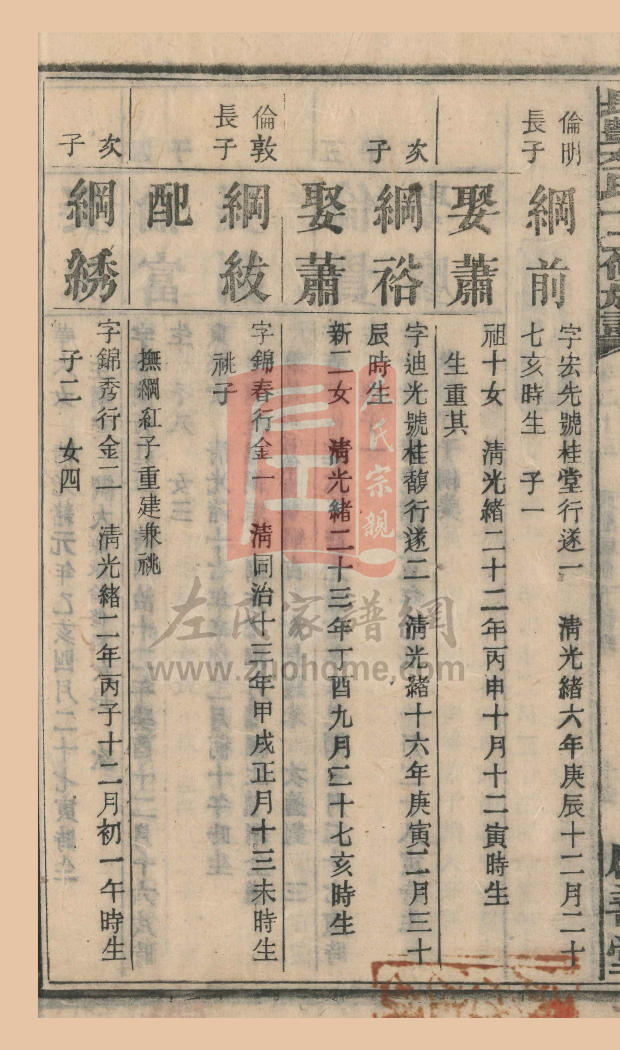 倫明
長子
綱前
字宏先號桂堂行遂一 清光緒六年庚辰十二月二十
七亥時生 子一
娶蕭
祖十女 清光緒二十二年丙申十月十二寅時生
生重其
次
子
綱裕
字迪光號桂馥行遂二 清光緒十六年庚寅二月三十
辰時生
娶蕭
新二女 清光緒二十三年丁酉九月二十七亥時生
倫敦
長子
綱紱
字錦春行金一 清同治十三年甲戌正月十三未時生
祧子
配
撫綱紅子重建兼祧
次
子
綱綉
字錦秀行金二 清光緒二年丙子十二月初一午時生
子二 女四
左氏宗親
左氏家譜網
www.zuohome.com